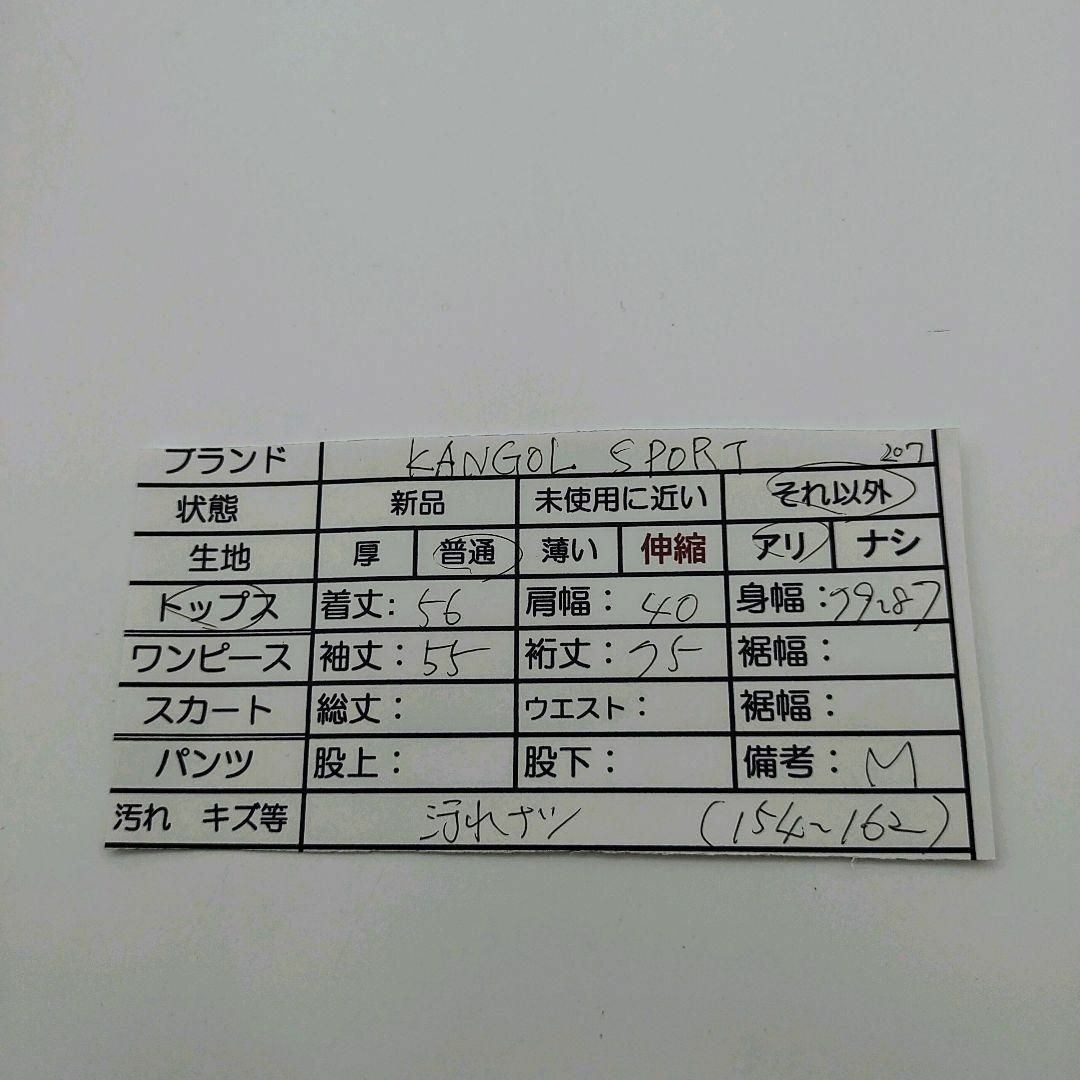 ブランド KANGOL SPORT 207
状態 新品 未使用に近い それ以外
生地 厚 普通 薄い 伸縮 アリ ナシ
トップス 着丈: 56 肩幅: 40 身幅: 79~87
ワンピース 袖丈: 55 裄丈: 75 裾幅:
スカート 総丈: ウエスト: 裾幅:
パンツ 股上: 股下: 備考: M
汚れ キズ等 汚れナシ (154~162)